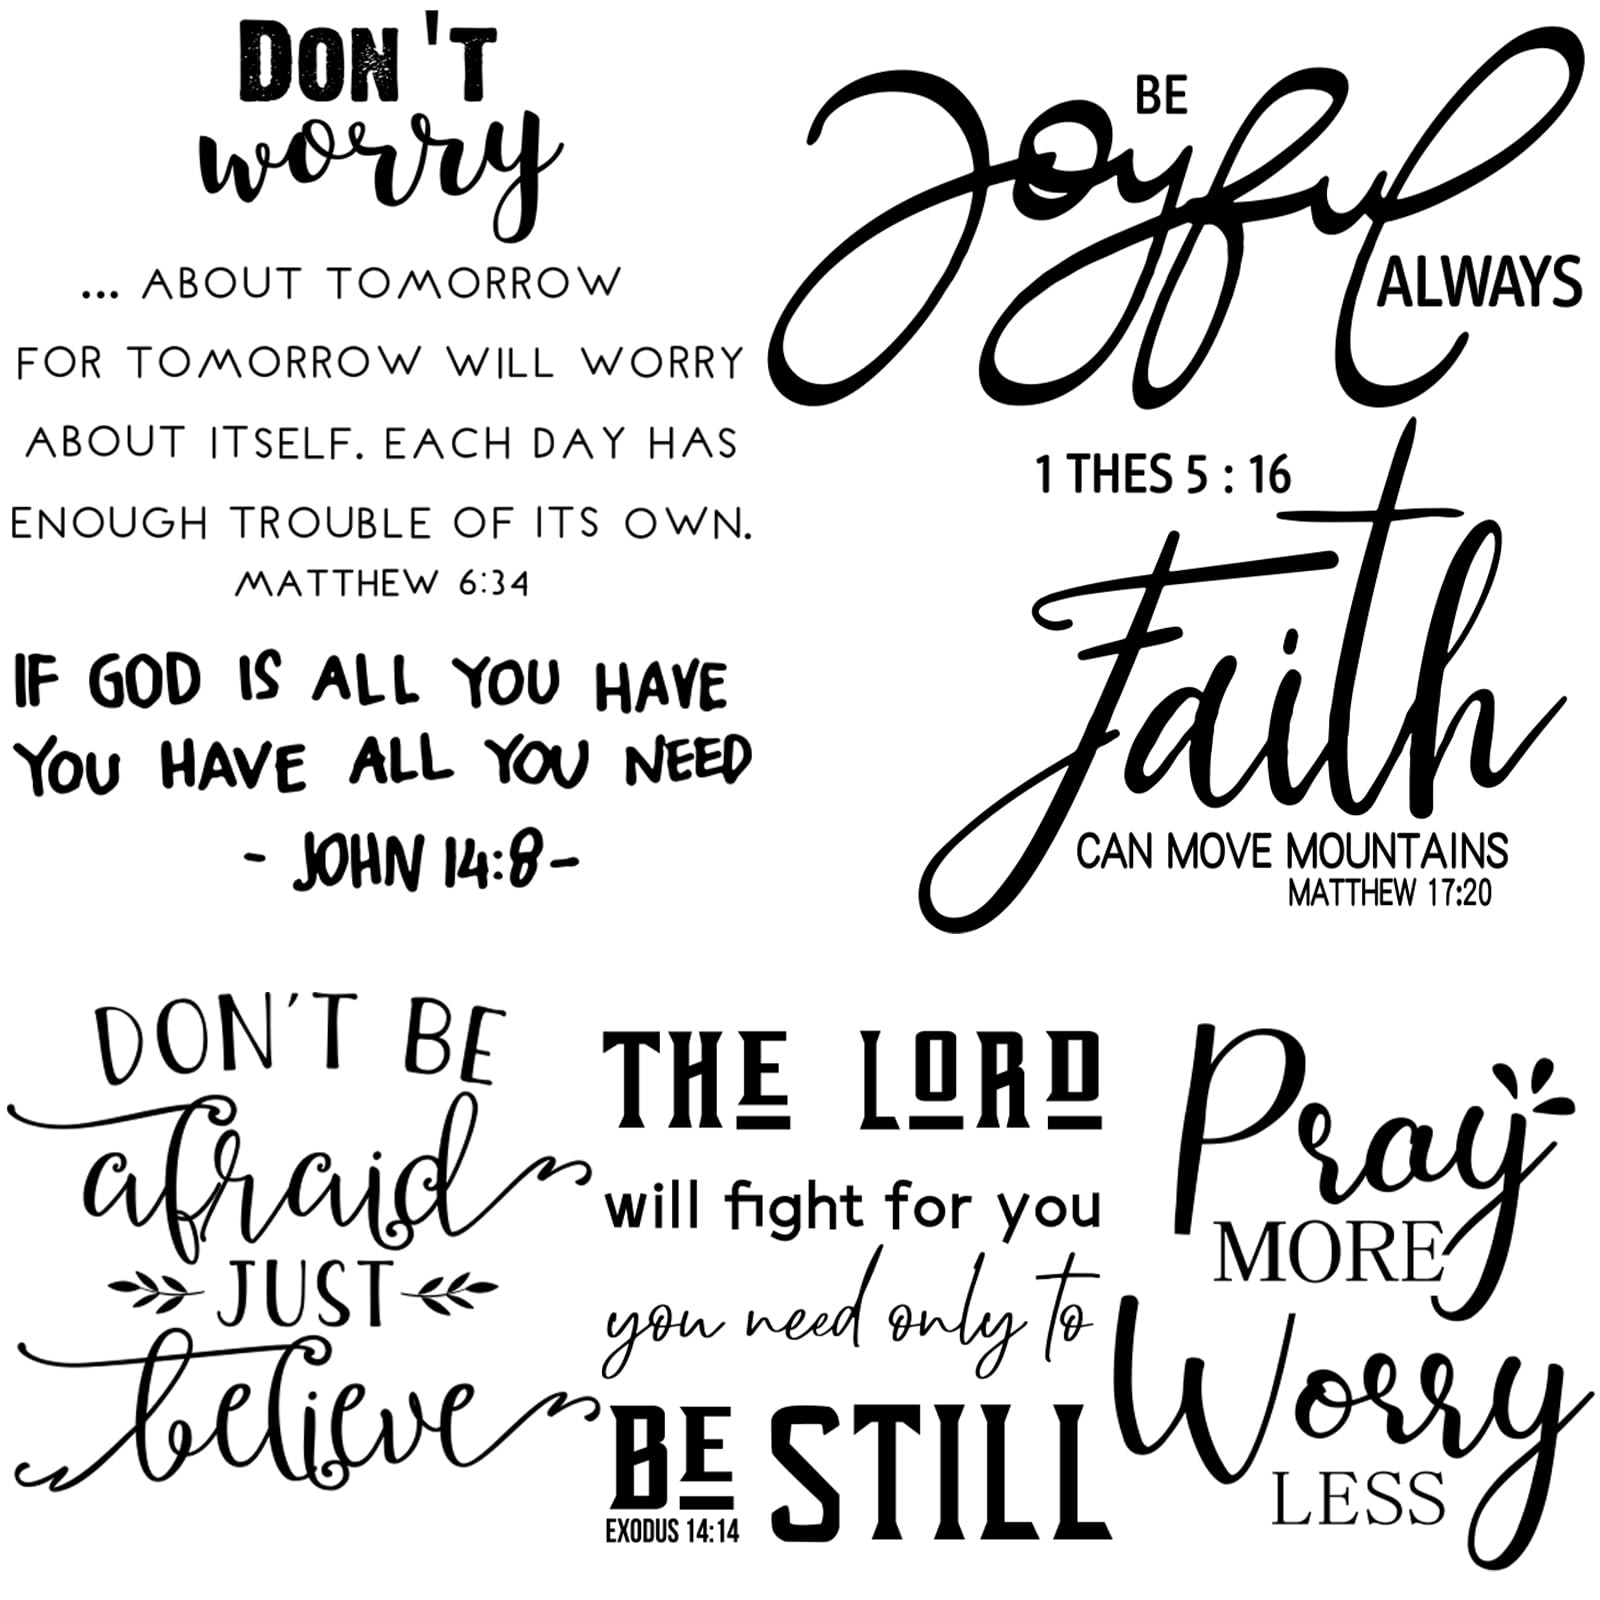 DON'T
worry
... ABOUT TOMORROW
FOR TOMORROW WILL WORRY
ABOUT ITSELF. EACH DAY HAS
ENOUGH TROUBLE OF ITS OWN.
MATTHEW 6:34
BE
Joyful
ALWAYS
1 THES 5 : 16
IF GOD IS ALL YOU HAVE
YOU HAVE ALL YOU NEED
- JOHN 14:8 -
Faith
CAN MOVE MOUNTAINS
MATTHEW 17:20
DON'T BE
afraid
JUST
believe
THE LORD
will fight for you
you need only to
BE STILL
EXODUS 14:14
Pray
MORE
Worry
LESS